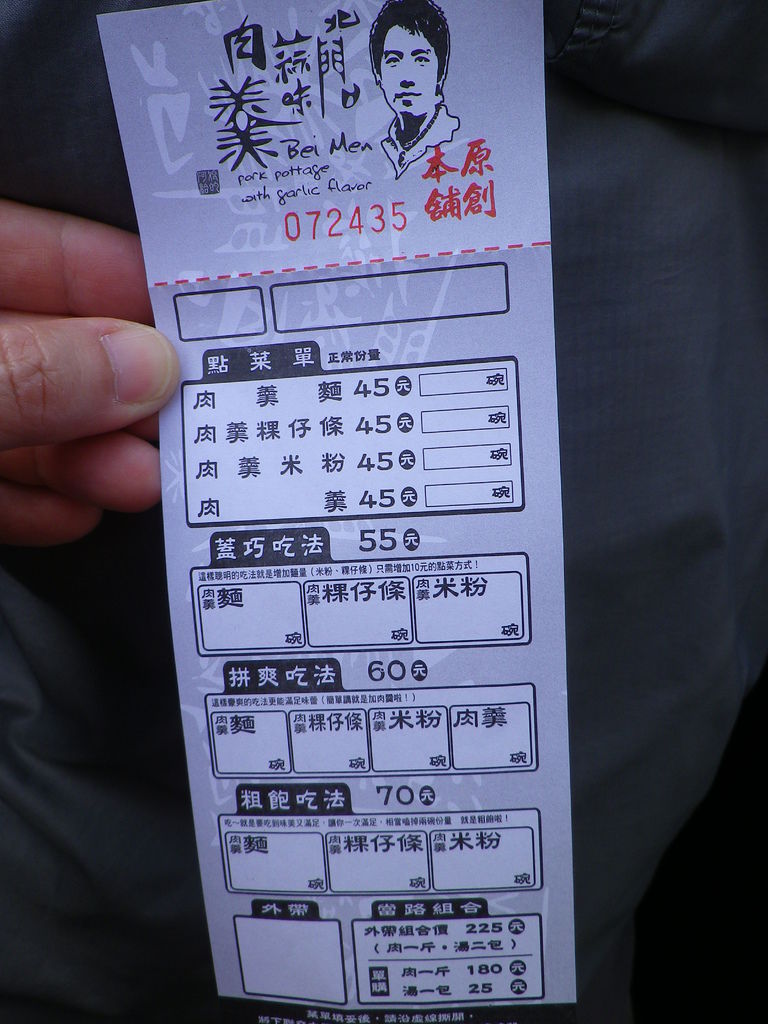 北門口
蒜味
肉羹
Bei Men
pork pottage
with garlic flavor
原創
本舖
072435
點菜單 正常份量
肉羹麵 45元 碗
肉羹粿仔條 45元 碗
肉羹米粉 45元 碗
肉羹 45元 碗
蓋巧吃法 55元
這樣聰明的吃法就是增加麵量(米粉、粿仔條)只需增加10元的點菜方式!
肉羹麵 碗 肉羹粿仔條 碗 肉羹米粉 碗
拼爽吃法 60元
這樣豪爽的吃法更能滿足味蕾(簡單講就是加肉羹啦!)
肉羹麵 碗 肉羹粿仔條 碗 肉羹米粉 碗 肉羹 碗
粗飽吃法 70元
吃~就是要吃到味美又滿足,讓你一次滿足,相當嗑掉兩碗份量 就是粗飽啦!
肉羹麵 碗 肉羹粿仔條 碗 肉羹米粉 碗
外帶 當路組合
外帶組合價 225元
(肉一斤・湯二包)
單購 肉一斤 180元
湯一包 25元
菜單填妥後,請沿虛線撕開,